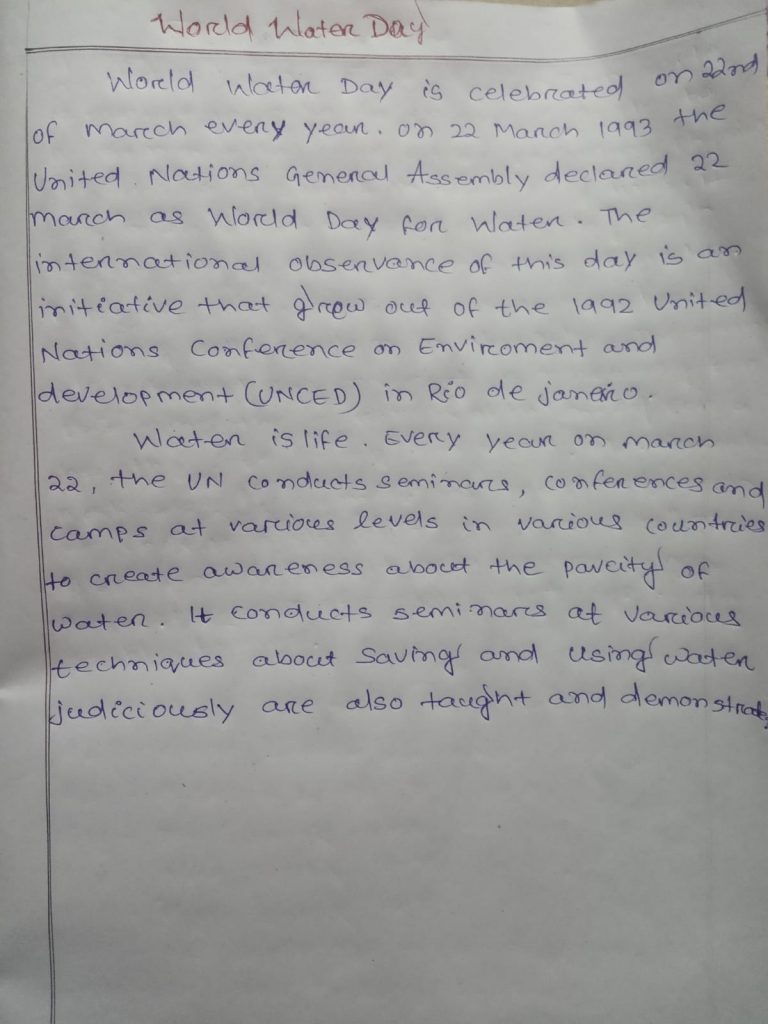 World Water Day
World Water Day is celebrated on 22nd
of march every year. on 22 March 1993 the
United Nations General Assembly declared 22
march as World Day for Water. The
international observance of this day is an
initiative that grow out of the 1992 United
Nations Conference on Enviroment and
development (UNCED) in Rio de janeiro.
Water is life. Every year on march
22, the UN conducts seminars, conferences and
camps at various levels in various countries
to create awareness about the paucity of
water. It conducts seminars at various
techniques about saving and using water
judiciously are also taught and demonstrate